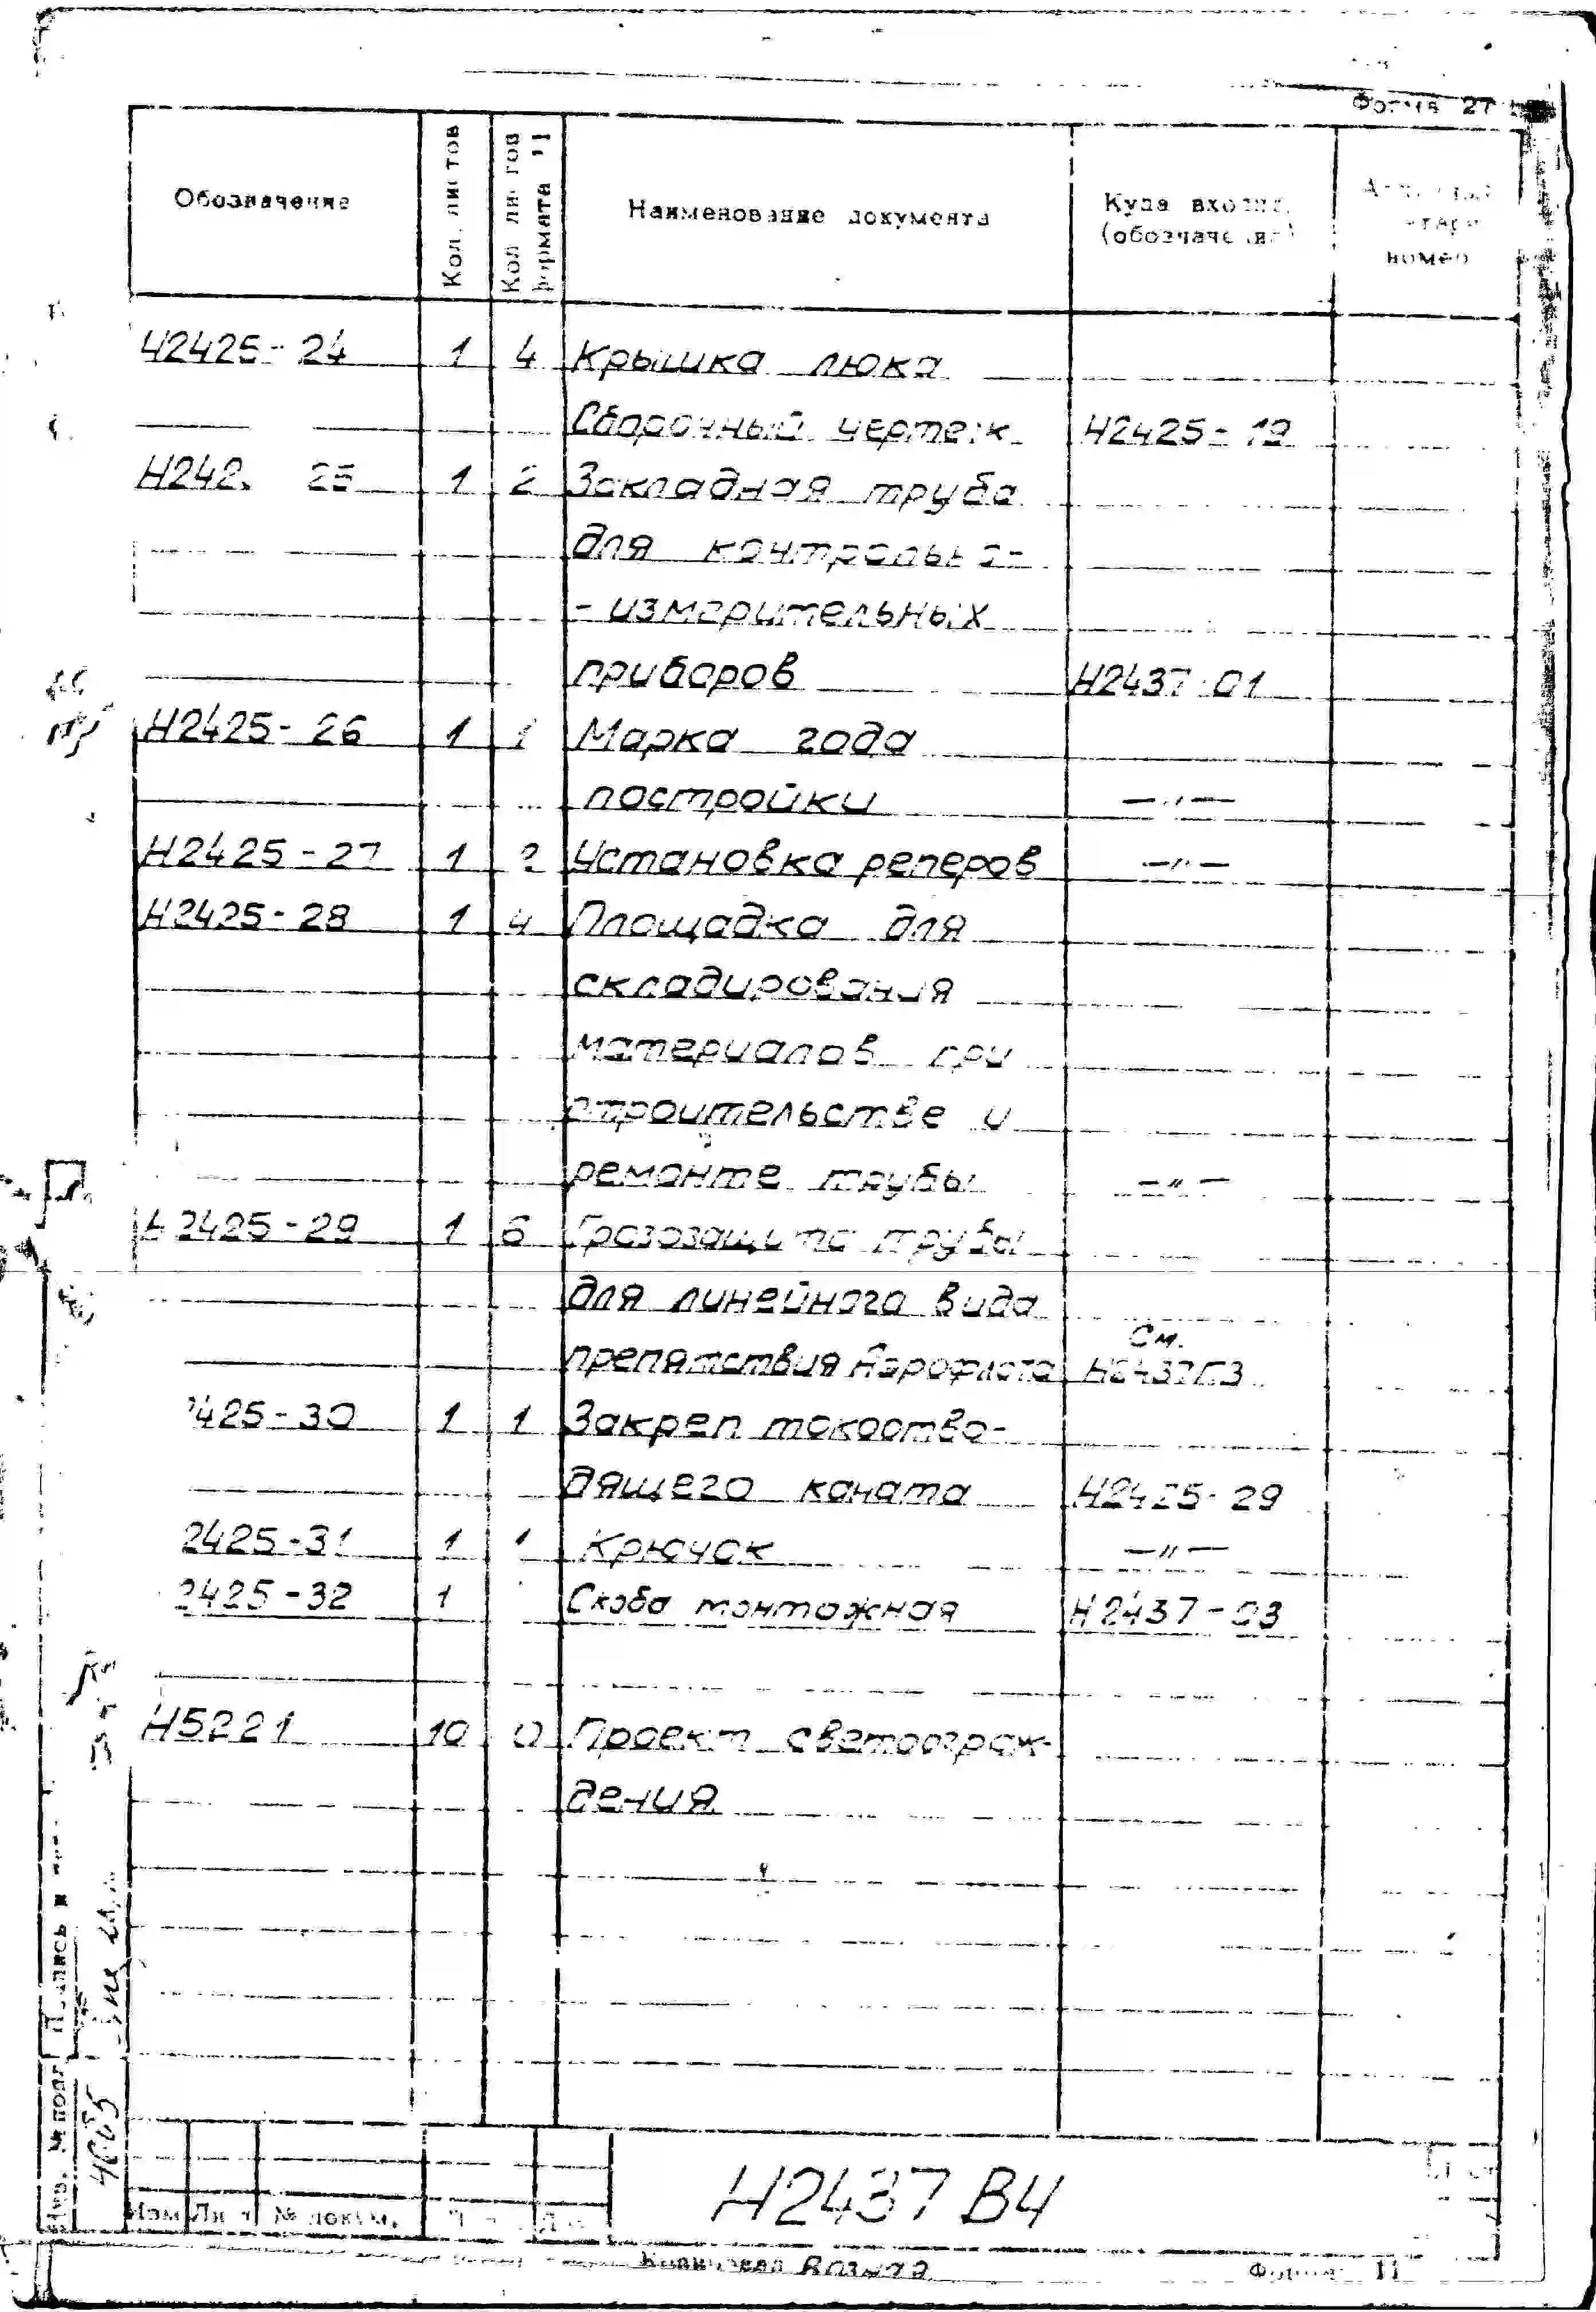 Форма 27
Обозначение
Кол. листов
Кол листов формата 11
Наименование документа
Куда входит (обозначение)
номер
Н2425-24 1 4 Крышка люка
Сборочный чертеж Н2425-19
25 1 2 Закладная труба
для контрольно-
-измерительных
приборов Н2437-01
Н2425-26 1 1 Марка года
постройки —"—
Н2425-27 1 2 Установка реперов —"—
Н2425-28 1 4 Площадка для
складирования
материалов при
строительстве и
ремонте трубы —"—
Н2425-29 1 6 Грозозащита трубы
для линейного вида
См.
препятствия Аэрофлота Н2437ПЗ
2425-30 1 1 Закреп токоотво-
дящего каната Н2425-29
2425-31 1 1 Крючок —"—
2425-32 1 Скоба монтажная Н2437-03
Н5221 10 Проект светоограж-
дения
Подпись и
Инв. № подл
Изм Лист № докум.
Н2437 В4
Лист
Копировал
Формат 11